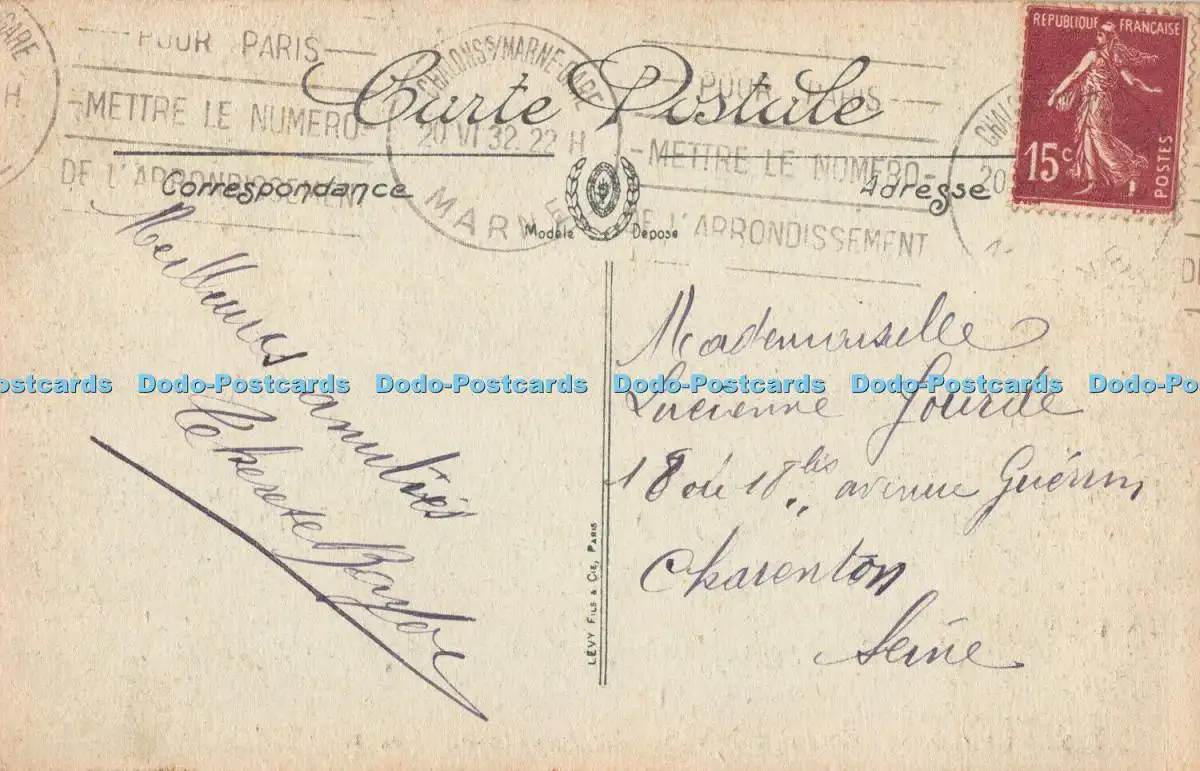 RÉPUBLIQUE FRANÇAISE
15c
POSTES
POUR PARIS
METTRE LE NUMERO
DE L'ARRONDISSEMENT
CHALONS S/MARNE-GARE
20 VI 32. 22 H
MARNE
POUR PARIS
METTRE LE NUMERO
DE L'ARRONDISSEMENT
GARE
H
CHALO
20
Carte Postale
Correspondance
Adresse
Modèle Déposé
Meilleures amitiés
Mademoiselle
Lucienne Jourde
18 ou 18 bis avenue Guérin
Charenton
Seine
LÉVY FILS & CIE, PARIS
ostcards Dodo-Postcards Dodo-Postcards Dodo-Postcards Dodo-Postcards Dodo-Postc